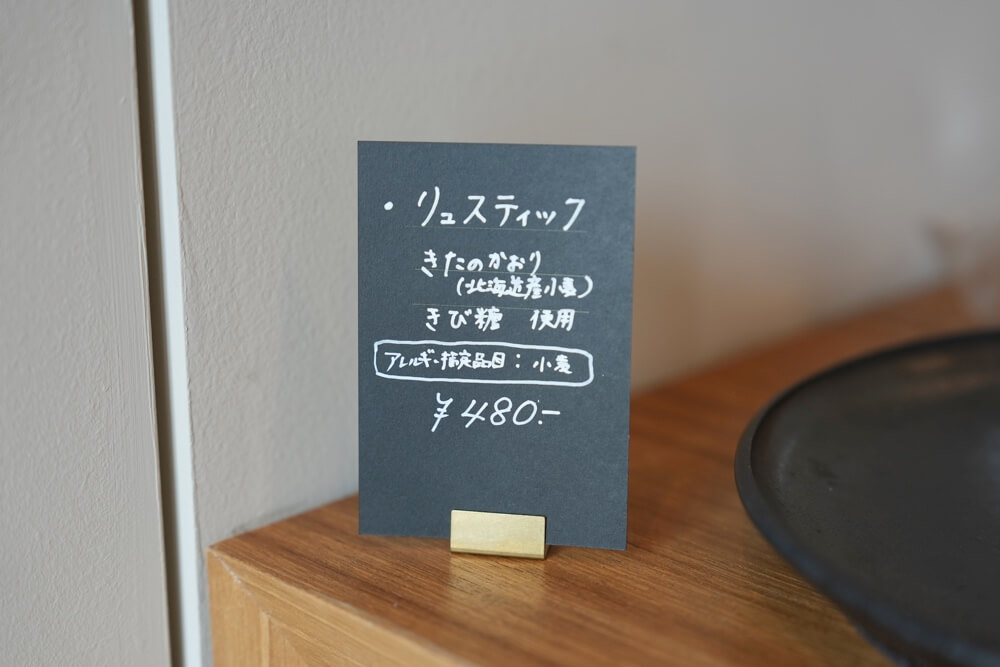 ・リュスティック
きたのかおり
(北海道産小麦)
きび糖 使用
アレルギー指定品目：小麦
¥480.-